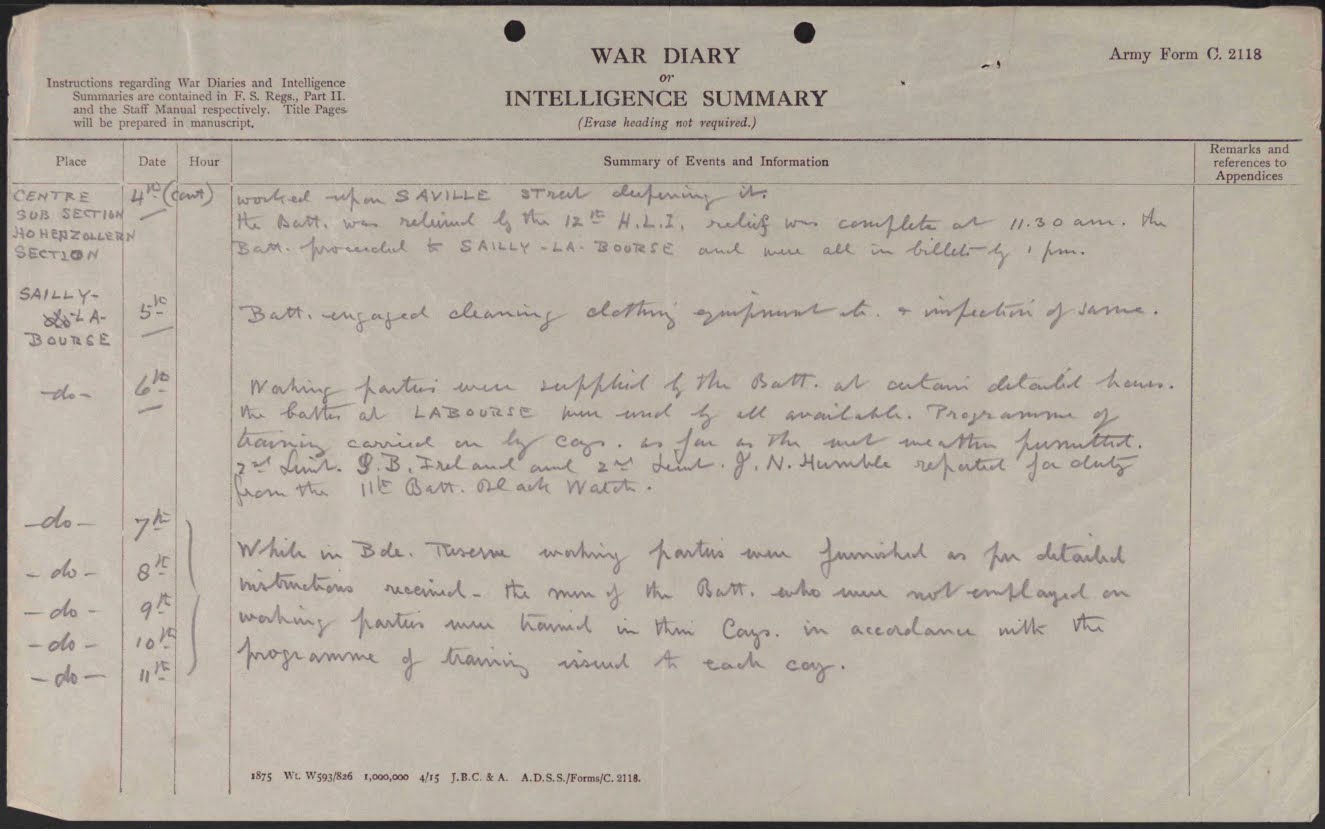 WAR DIARY
or
INTELLIGENCE SUMMARY
(Erase heading not required.)
Army Form C. 2118
Instructions regarding War Diaries and Intelligence
Summaries are contained in F. S. Regs., Part II.
and the Staff Manual respectively. Title Pages
will be prepared in manuscript.
Place Date Hour Summary of Events and Information Remarks and
references to
Appendices
CENTRE
SUB SECTION
HOHENZOLLERN
SECTION
4th (cont)
worked upon SAVILLE Street deepening it.
the Batt. was relieved by the 12th H.L.I. relief was complete at 11.30 am. the
Batt. proceeded to SAILLY-LA-BOURSE and were all in billets by 1 pm.
SAILLY-
LA-
BOURSE
5th
Batt. engaged cleaning clothing equipment etc. & inspection of same.
-do- 6th
Working parties were supplied by the Batt. at certain detailed hours.
the baths at LABOURSE were used by all available. Programme of
training carried on by coys. as far as the wet weather permitted.
2nd Lieut. J.B. Ireland and 2nd Lieut. J. N. Humble reported for duty
from the 11th Batt. Black Watch.
-do- 7th
-do- 8th
-do- 9th
-do- 10th
-do- 11th
While in Bde. Reserve working parties were furnished as per detailed
instructions received - the men of the Batt. who were not employed on
working parties were trained in their Coys. in accordance with the
programme of training issued to each coy.
1875 Wt. W593/826 1,000,000 4/15 J.B.C. & A. A.D.S.S./Forms/C. 2118.